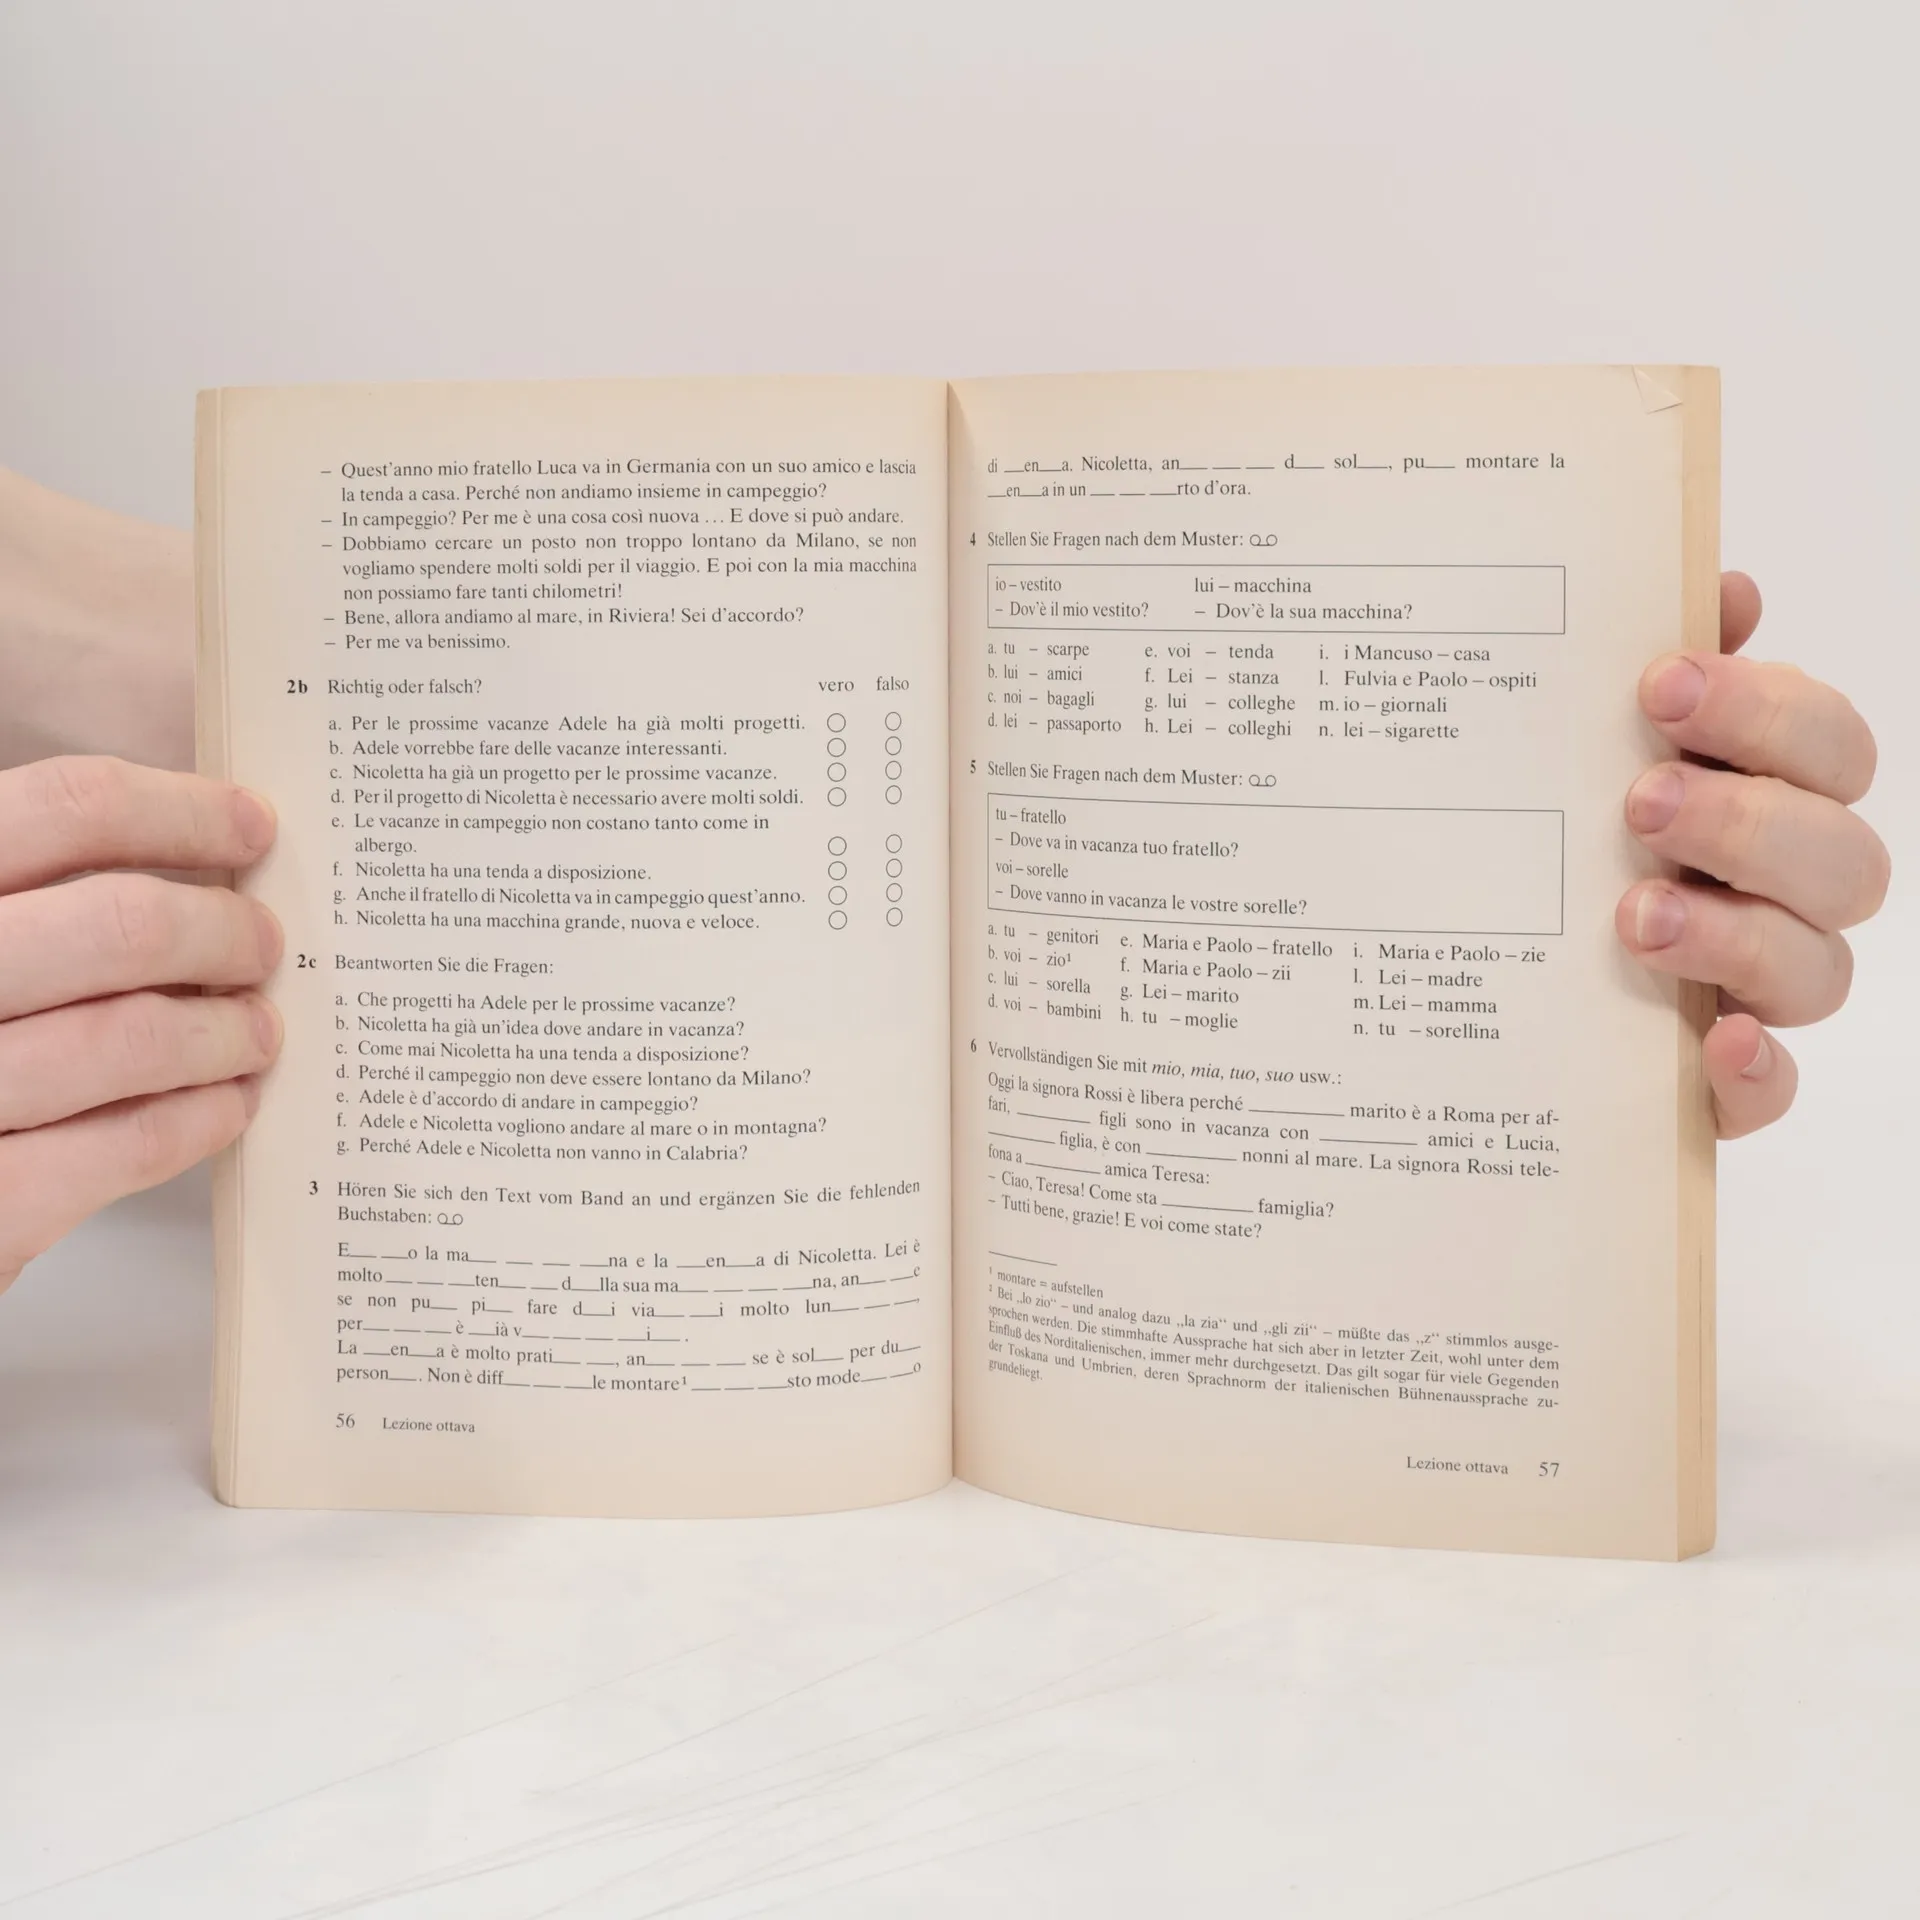 – Quest'anno mio fratello Luca va in Germania con un suo amico e lascia
la tenda a casa. Perché non andiamo insieme in campeggio?
– In campeggio? Per me è una cosa così nuova ... E dove si può andare.
– Dobbiamo cercare un posto non troppo lontano da Milano, se non
vogliamo spendere molti soldi per il viaggio. E poi con la mia macchina
non possiamo fare tanti chilometri!
– Bene, allora andiamo al mare, in Riviera! Sei d'accordo?
– Per me va benissimo.
2b Richtig oder falsch? vero falso
a. Per le prossime vacanze Adele ha già molti progetti. ○ ○
b. Adele vorrebbe fare delle vacanze interessanti. ○ ○
c. Nicoletta ha già un progetto per le prossime vacanze. ○ ○
d. Per il progetto di Nicoletta è necessario avere molti soldi. ○ ○
e. Le vacanze in campeggio non costano tanto come in
albergo. ○ ○
f. Nicoletta ha una tenda a disposizione. ○ ○
g. Anche il fratello di Nicoletta va in campeggio quest'anno. ○ ○
h. Nicoletta ha una macchina grande, nuova e veloce. ○ ○
2c Beantworten Sie die Fragen:
a. Che progetti ha Adele per le prossime vacanze?
b. Nicoletta ha già un'idea dove andare in vacanza?
c. Come mai Nicoletta ha una tenda a disposizione?
d. Perché il campeggio non deve essere lontano da Milano?
e. Adele è d'accordo di andare in campeggio?
f. Adele e Nicoletta vogliono andare al mare o in montagna?
g. Perché Adele e Nicoletta non vanno in Calabria?
3 Hören Sie sich den Text vom Band an und ergänzen Sie die fehlenden
Buchstaben:
E__ __o la ma__ __ __ __na e la __en__a di Nicoletta. Lei è
molto __ __ __ten__ __d__lla sua ma__ __ __ __na, an__ __e
se non pu__ pi__ fare d__i via__ __i molto lun__ __ __,
per__ __ __è __ià v__ __ __ __i__.
La __en__a è molto prati__ __, an__ __ __ se è sol__ per du__
person__. Non è diff__ __ __le montare¹ __ __ __sto mode__ __o
56 Lezione ottava
di __en__a. Nicoletta, an__ __ __ d__ sol__, pu__ montare la
__en__a in un __ __ __rto d'ora.
4 Stellen Sie Fragen nach dem Muster:
io – vestito lui – macchina
– Dov'è il mio vestito? – Dov'è la sua macchina?
a. tu – scarpe e. voi – tenda i. i Mancuso – casa
b. lui – amici f. Lei – stanza l. Fulvia e Paolo – ospiti
c. noi – bagagli g. lui – colleghe m. io – giornali
d. lei – passaporto h. Lei – colleghi n. lei – sigarette
5 Stellen Sie Fragen nach dem Muster:
tu – fratello
– Dove va in vacanza tuo fratello?
voi – sorelle
– Dove vanno in vacanza le vostre sorelle?
a. tu – genitori e. Maria e Paolo – fratello i. Maria e Paolo – zie
b. voi – zio¹ f. Maria e Paolo – zii l. Lei – madre
c. lui – sorella g. Lei – marito m. Lei – mamma
d. voi – bambini h. tu – moglie n. tu – sorellina
6 Vervollständigen Sie mit mio, mia, tuo, suo usw.:
Oggi la signora Rossi è libera perché ________ marito è a Roma per af-
fari, ________ figli sono in vacanza con ________ amici e Lucia,
________ figlia, è con ________ nonni al mare. La signora Rossi tele-
fona a ________ amica Teresa:
– Ciao, Teresa! Come sta ________ famiglia?
– Tutti bene, grazie! E voi come state?
¹ montare = aufstellen
² Bei „lo zio“ – und analog dazu „la zia“ und „gli zii“ – müßte das „z“ stimmlos ausge-
sprochen werden. Die stimmhafte Aussprache hat sich aber in letzter Zeit, wohl unter dem
Einfluß des Norditalienischen, immer mehr durchgesetzt. Das gilt sogar für viele Gegenden
der Toskana und Umbrien, deren Sprachnorm der italienischen Bühnenaussprache zu-
grundeliegt.
Lezione ottava 57